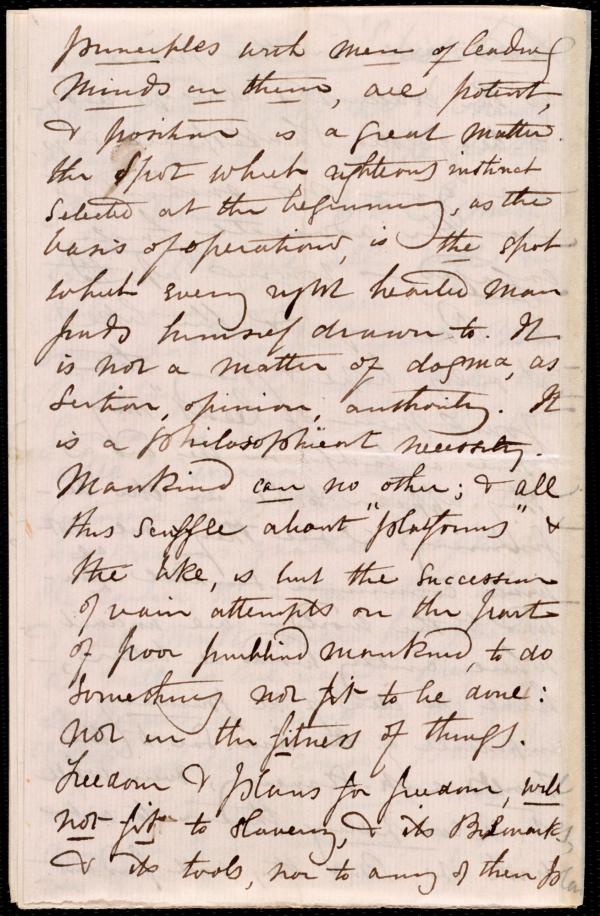 principles with men of leading
minds in them, are potent,
& position is a great matter.
the spot which righteous instinct
selected at the beginning, as the
basis of operations, is the spot
which every right hearted man
finds himself drawn to. It
is not a matter of dogma, as
sertion, opinion, authority. It
is a philosophical necessity.
Mankind can no other; & all
this scuffle about "platforms" &
the like, is but the succession
of vain attempts on the part
of poor purblind mankind, to do
something not fit to be done:
not in the fitness of things.
Freedom & plans for freedom, will
not fit to slavery, & its Bismarks,
& its tools, nor to any of them